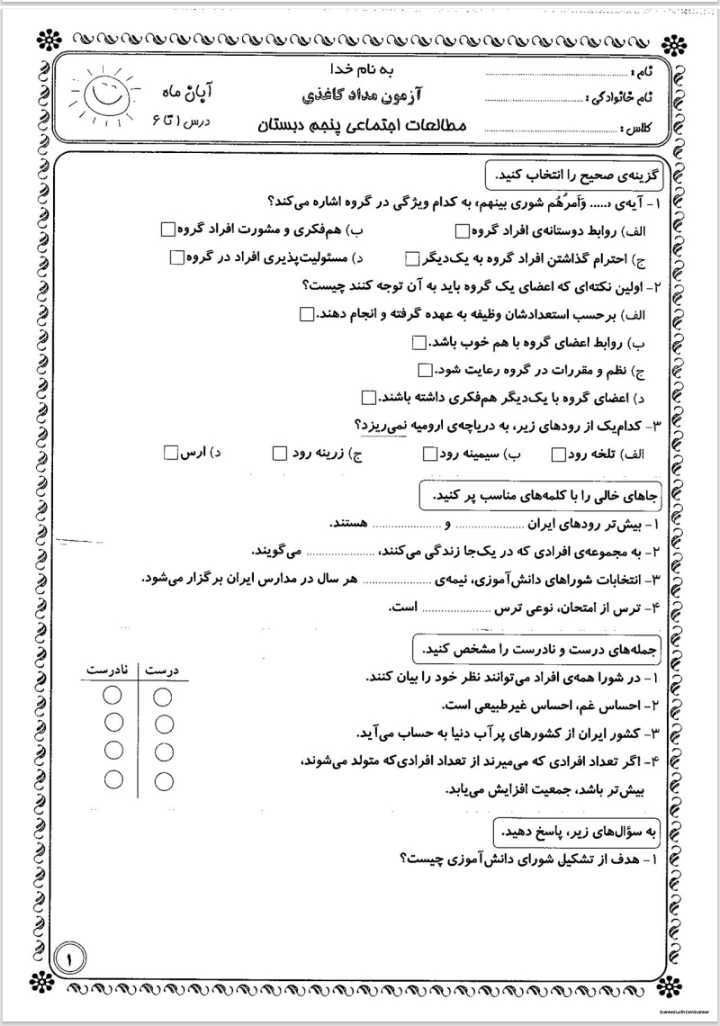 به نام خدا
آزمون مداد کاغذی
مطالعات اجتماعی پنجم دبستان
نام : ........................................
نام خانوادگی : ............................
کلاس : ......................................
آبان ماه
درس ۱ تا ۶
گزینه‌ی صحیح را انتخاب کنید.
۱- آیه‌ی «..... وَاَمرُهُم شوری بینهم» به کدام ویژگی در گروه اشاره می‌کند؟
الف) روابط دوستانه‌ی افراد گروه □ ب) هم‌فکری و مشورت افراد گروه □
ج) احترام گذاشتن افراد گروه به یک‌دیگر □ د) مسئولیت‌پذیری افراد در گروه □
۲- اولین نکته‌ای که اعضای یک گروه باید به آن توجه کنند چیست؟
الف) برحسب استعدادشان وظیفه به عهده گرفته و انجام دهند. □
ب) روابط اعضای گروه با هم خوب باشد. □
ج) نظم و مقررات در گروه رعایت شود. □
د) اعضای گروه با یک‌دیگر هم‌فکری داشته باشند. □
۳- کدام‌یک از رودهای زیر، به دریاچه‌ی ارومیه نمی‌ریزد؟
الف) تلخه رود □ ب) سیمینه رود □ ج) زرینه رود □ د) ارس □
جاهای خالی را با کلمه‌های مناسب پر کنید.
۱- بیش‌تر رودهای ایران .................... و .................... هستند.
۲- به مجموعه‌ی افرادی که در یک‌جا زندگی می‌کنند، .................... می‌گویند.
۳- انتخابات شوراهای دانش‌آموزی، نیمه‌ی .................... هر سال در مدارس ایران برگزار می‌شود.
۴- ترس از امتحان، نوعی ترس .................... است.
جمله‌های درست و نادرست را مشخص کنید.
درست نادرست
۱- در شورا همه‌ی افراد می‌توانند نظر خود را بیان کنند.
۲- احساس غم، احساس غیرطبیعی است.
۳- کشور ایران از کشورهای پرآب دنیا به حساب می‌آید.
۴- اگر تعداد افرادی که می‌میرند از تعداد افرادی‌که متولد می‌شوند،
بیش‌تر باشد، جمعیت افزایش می‌یابد.
به سؤال‌های زیر، پاسخ دهید.
۱- هدف از تشکیل شورای دانش‌آموزی چیست؟
۱
Scanned with CamScanner